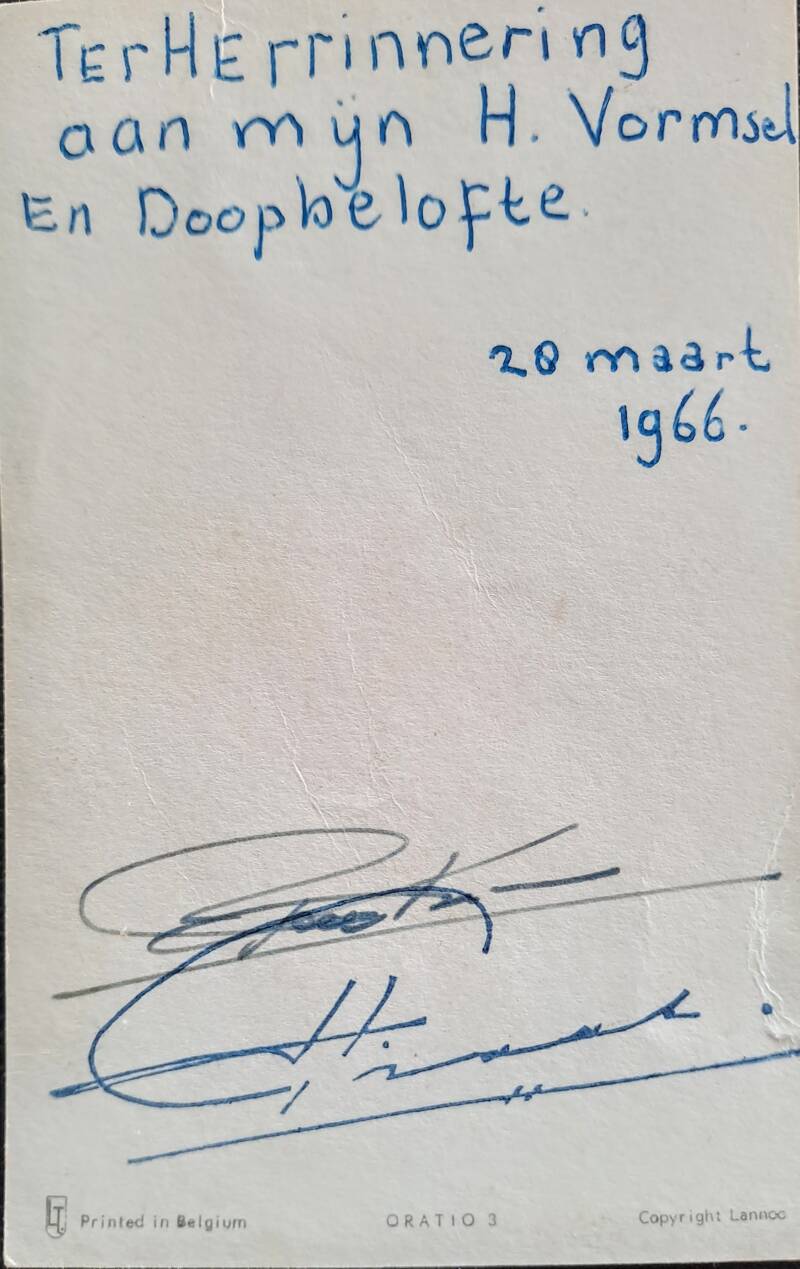 TErHErrinnering
aan mijn H. Vormsel
En Doopbelofte.
28 maart
1966.
LT. Printed in Belgium ORATIO 3 Copyright Lannoo